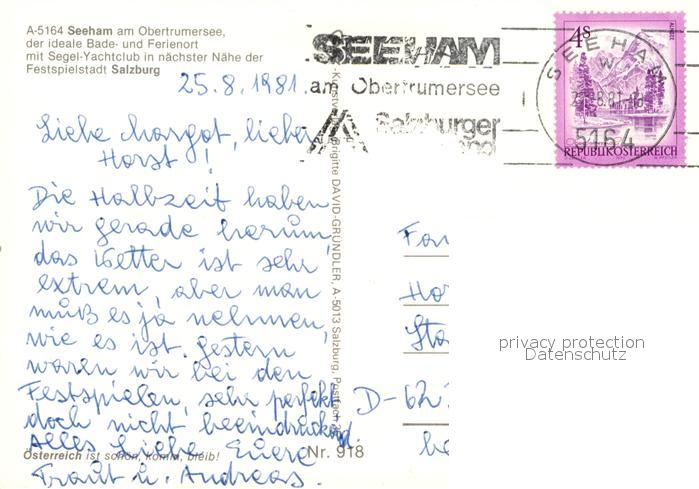 A-5164 Seeham am Obertrumersee,
der ideale Bade- und Ferienort
mit Segel-Yachtclub in nächster Nähe der
Festspielstadt Salzburg
25.8.1981.
Liebe Margot, lieber
Horst!
Die Halbzeit haben
wir gerade herum,
das Wetter ist sehr
extrem, aber man
muß es ja nehmen,
wie es ist. Gestern
waren wir bei den
Festspielen, sehr perfekt
doch nicht beeindruckend.
Alles Liebe Euere
Traut u. Andreas.
Österreich ist schön, komm, bleib!
Nr. 918
Brigitte DAVID-GRÜNDLER, A-5013 Salzburg, Postfach
SEEHAM
am Obertrumersee
Salzburger
4S
REPUBLIK ÖSTERREICH
SEEHAM
5164
Fam
Ho
D-62
privacy protection
Datenschutz